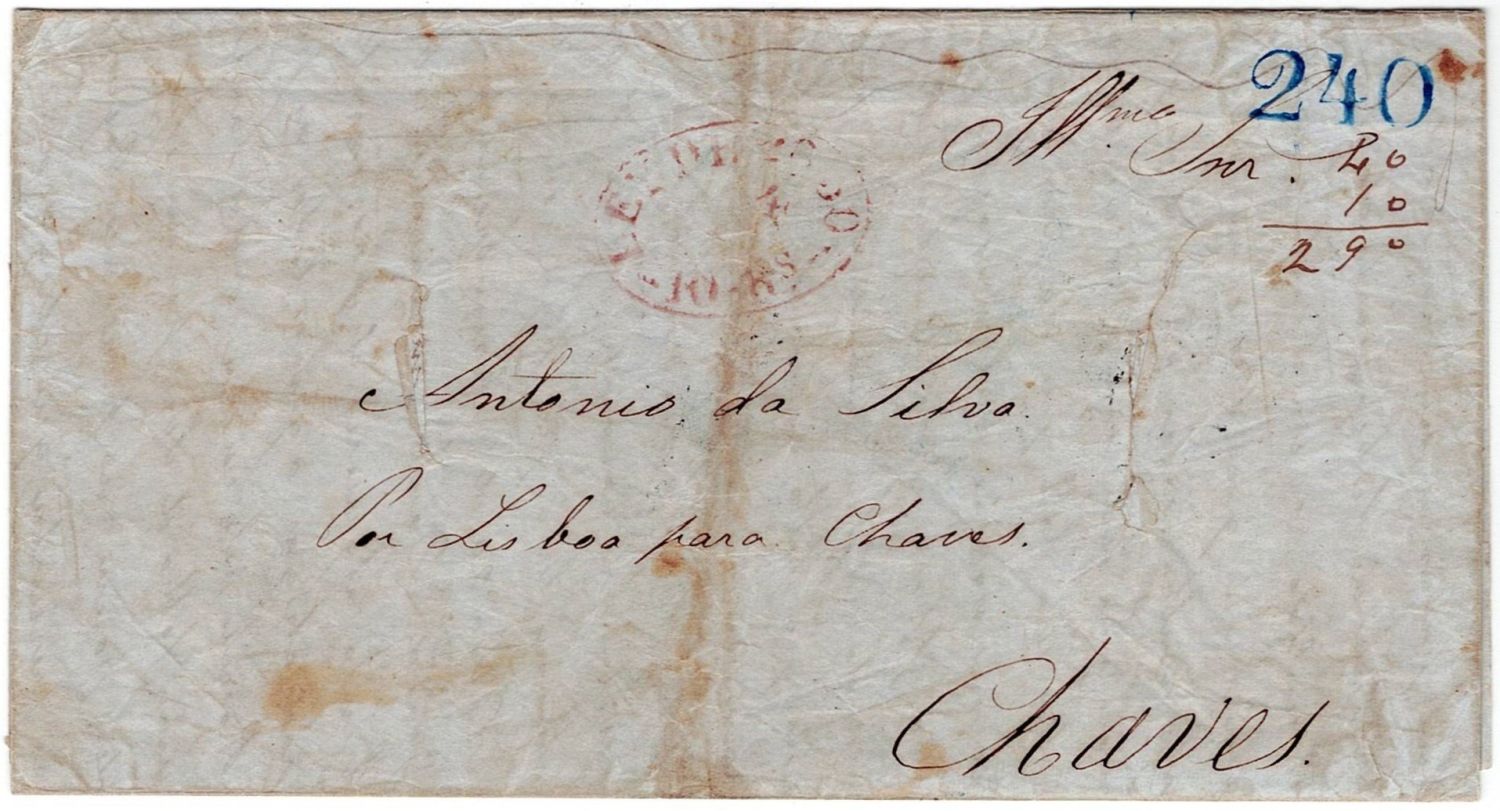 240
Illmo. Snr.
40
10
290
LEI DE 1830
10 RS
Antonio da Silva
Por Lisboa para Chaves.
Chaves.